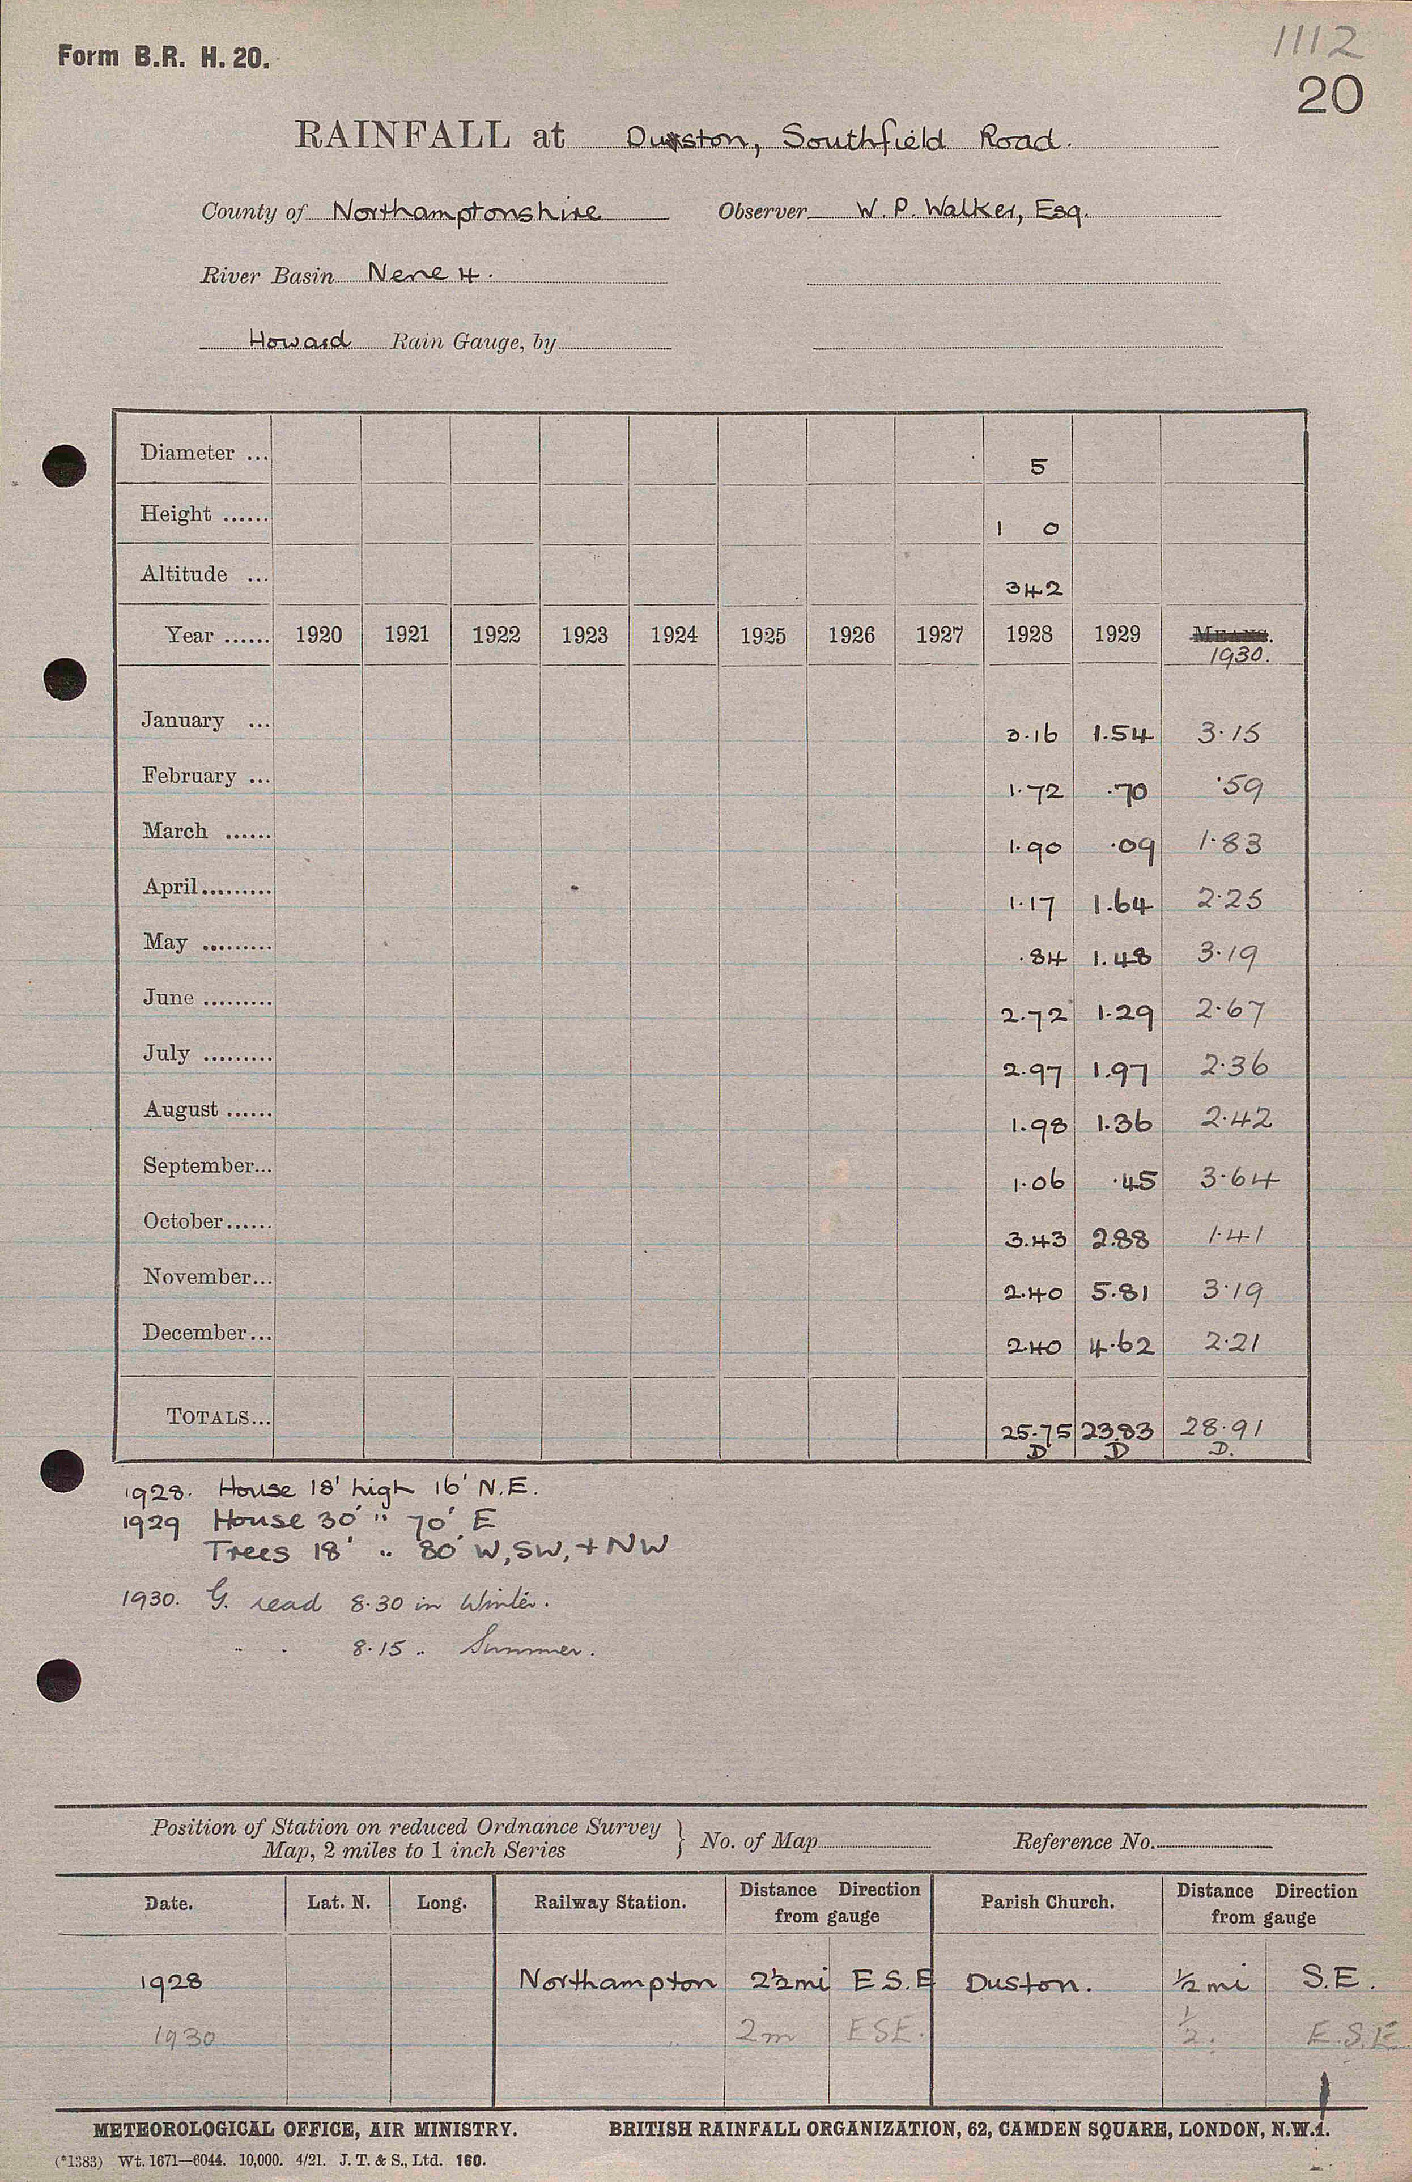 Form B.R. H. 20.
1112
20
RAINFALL at Duston, Southfield Road.
County of Northamptonshire Observer W. P. Walker, Esq.
River Basin Nene 4.
Howard Rain Gauge, by
Diameter ... 5
Height ...... 1 0
Altitude ... 342
Year ...... 1920 1921 1922 1923 1924 1925 1926 1927 1928 1929 MEANS.
1930.
January ... 3.16 1.54 3.15
February ... 1.72 .70 .59
March ...... 1.90 .09 1.83
April......... 1.17 1.64 2.25
May ......... .84 1.48 3.19
June ......... 2.72 1.29 2.67
July ......... 2.97 1.97 2.36
August ...... 1.98 1.36 2.42
September... 1.06 .45 3.64
October...... 3.43 2.88 1.41
November... 2.40 5.81 3.19
December... 2.40 4.62 2.21
TOTALS... 25.75 23.83 28.91
D D D.
1928. House 18' high 16' N.E.
1929 House 30' " 70' E
Trees 18' " 80' W, SW, + NW
1930. G. read 8.30 in Winter.
" " 8.15 " Summer.
Position of Station on reduced Ordnance Survey
Map, 2 miles to 1 inch Series } No. of Map Reference No.
Date. Lat. N. Long. Railway Station. Distance Direction from gauge Parish Church. Distance Direction from gauge
1928 Northampton 2½ mi E S.E Duston. ½ mi S.E.
1930 2m ESE. ½. E.S.E
METEOROLOGICAL OFFICE, AIR MINISTRY. BRITISH RAINFALL ORGANIZATION, 62, CAMDEN SQUARE, LONDON, N.W.1.
(*1383) Wt. 1671—6044. 10,000. 4/21. J. T. & S., Ltd. 160.